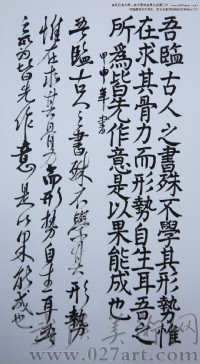 吾臨古人之書殊不學其形勢惟
在求其骨力而形勢自生耳吾之
所為皆先作意是以果能成也
甲申年書
吾臨古人之書殊不學其形勢
惟在求其骨力而形勢自生耳吾
之所為皆先作意是以果能成也
www.027art.com